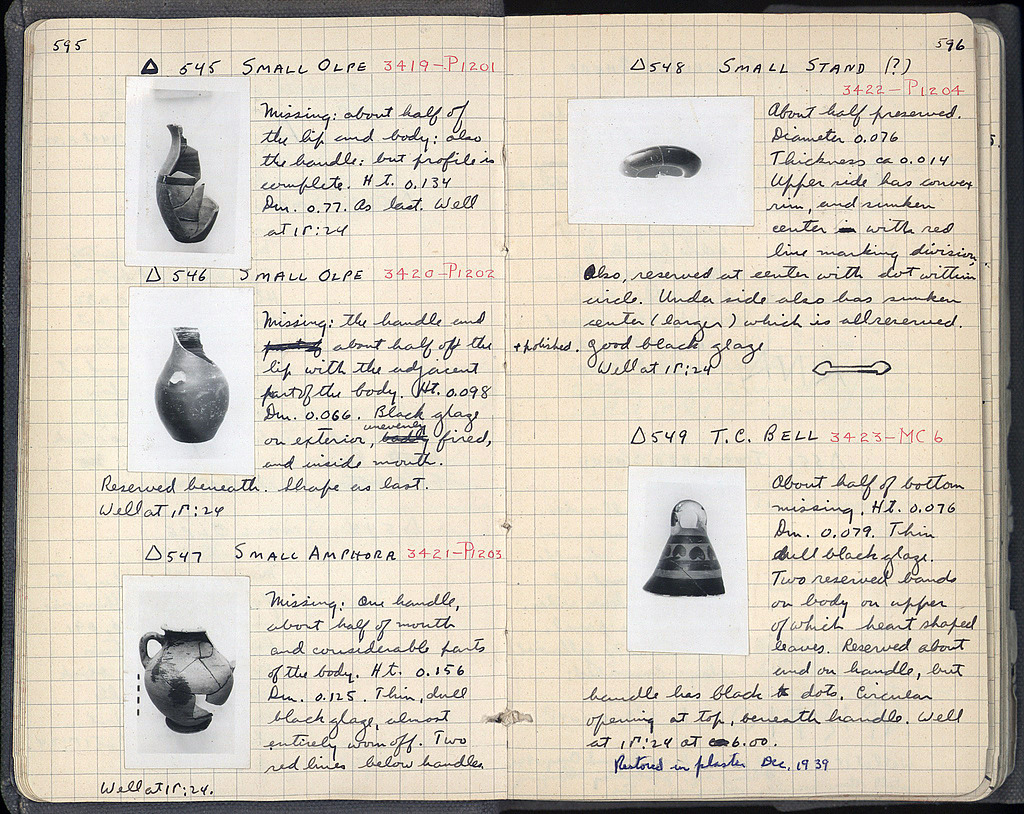 595
Δ 545 SMALL OLPE 3419-P1201
Missing: about half of
the lip and body; also
the handle; but profile is
complete. Ht. 0.134
Dm. 0.77. As last. Well
at ΙΓ:24
Δ 546 SMALL OLPE 3420-P1202
Missing: the handle and
about half off the
lip with the adjacent
part of the body. Ht. 0.098
Dm. 0.066. Black glaze
unevenly
on exterior, badly fired,
and inside mouth.
Reserved beneath. Shape as last.
Well at ΙΓ:24
Δ547 SMALL AMPHORA 3421-P1203
Missing: One handle,
about half of mouth
and considerable parts
of the body. Ht. 0.156
Dm. 0.125. Thin, dull
black glaze, almost
entirely worn off. Two
red lines below handles
Well at ΙΓ:24.
596
Δ548 SMALL STAND (?)
3422-P1204
About half preserved.
Diameter 0.076
Thickness ca 0.014
Upper side has convex
rim, and sunken
center with red
line marking division.
Also, reserved at center with dot within
circle. Under side also has sunken
center (larger) which is all reserved.
+ polished. Good black glaze
Well at ΙΓ:24
Δ549 T.C. BELL 3423-MC 6
About half of bottom
missing. Ht. 0.076
Dm. 0.079. Thin
dull black glaze.
Two reserved bands
on body on upper
of which heart shaped
leaves. Reserved about
and on handle, but
handle has black dots. Circular
opening at top, beneath handle. Well
at ΙΓ:24 at 6.00.
Restored in plaster Dec. 1939